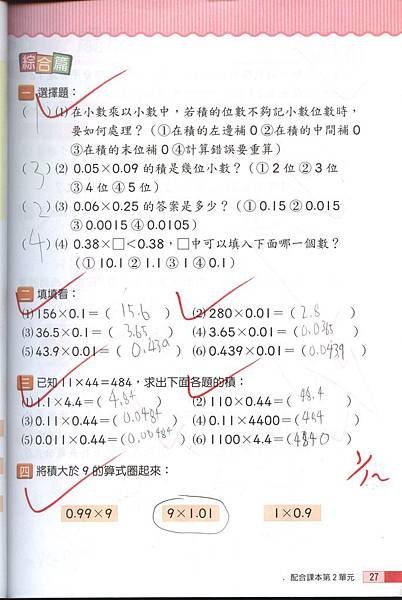 綜合篇
一 選擇題：
( 1 ) ⑴ 在小數乘以小數中，若積的位數不夠記小數位數時，
要如何處理？（①在積的左邊補0 ②在積的中間補0
③在積的末位補0 ④計算錯誤要重算）
( 3 ) ⑵ 0.05×0.09 的積是幾位小數？（①2位 ②3位
③4位 ④5位）
( 2 ) ⑶ 0.06×0.25 的答案是多少？（①0.15 ②0.015
③0.0015 ④0.0105）
( 4 ) ⑷ 0.38×□＜0.38，□中可以填入下面哪一個數？
（①10.1 ②1.1 ③1 ④0.1）
二 填填看：
⑴ 156×0.1＝( 15.6 ) ⑵ 280×0.01＝( 2.8 )
⑶ 36.5×0.1＝( 3.65 ) ⑷ 3.65×0.01＝( 0.0365 )
⑸ 43.9×0.01＝( 0.439 ) ⑹ 0.439×0.1＝( 0.0439 )
三 已知11×44＝484，求出下面各題的積：
⑴ 1.1×4.4＝( 4.84 ) ⑵ 110×0.44＝( 48.4 )
⑶ 0.11×0.44＝( 0.0484 ) ⑷ 0.11×4400＝( 484 )
⑸ 0.011×0.44＝( 0.00484 ) ⑹ 1100×4.4＝( 4840 )
四 將積大於9的算式圈起來：
0.99×9 9×1.01 1×0.9
配合課本第2單元 27